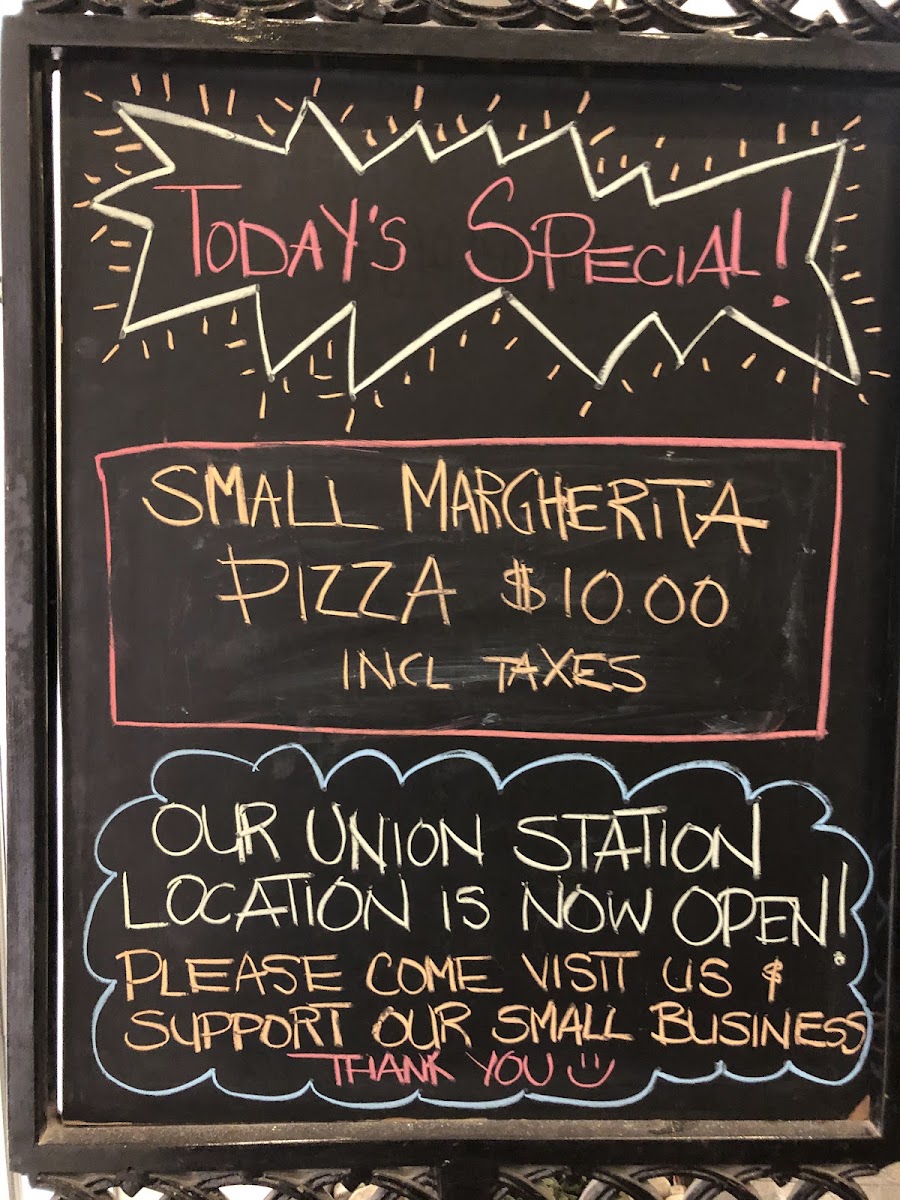 TODAY'S SPECIAL!
SMALL MARGHERITA
PIZZA $10.00
INCL TAXES
OUR UNION STATION
LOCATION IS NOW OPEN!
PLEASE COME VISIT US &
SUPPORT OUR SMALL BUSINESS
THANK YOU :)